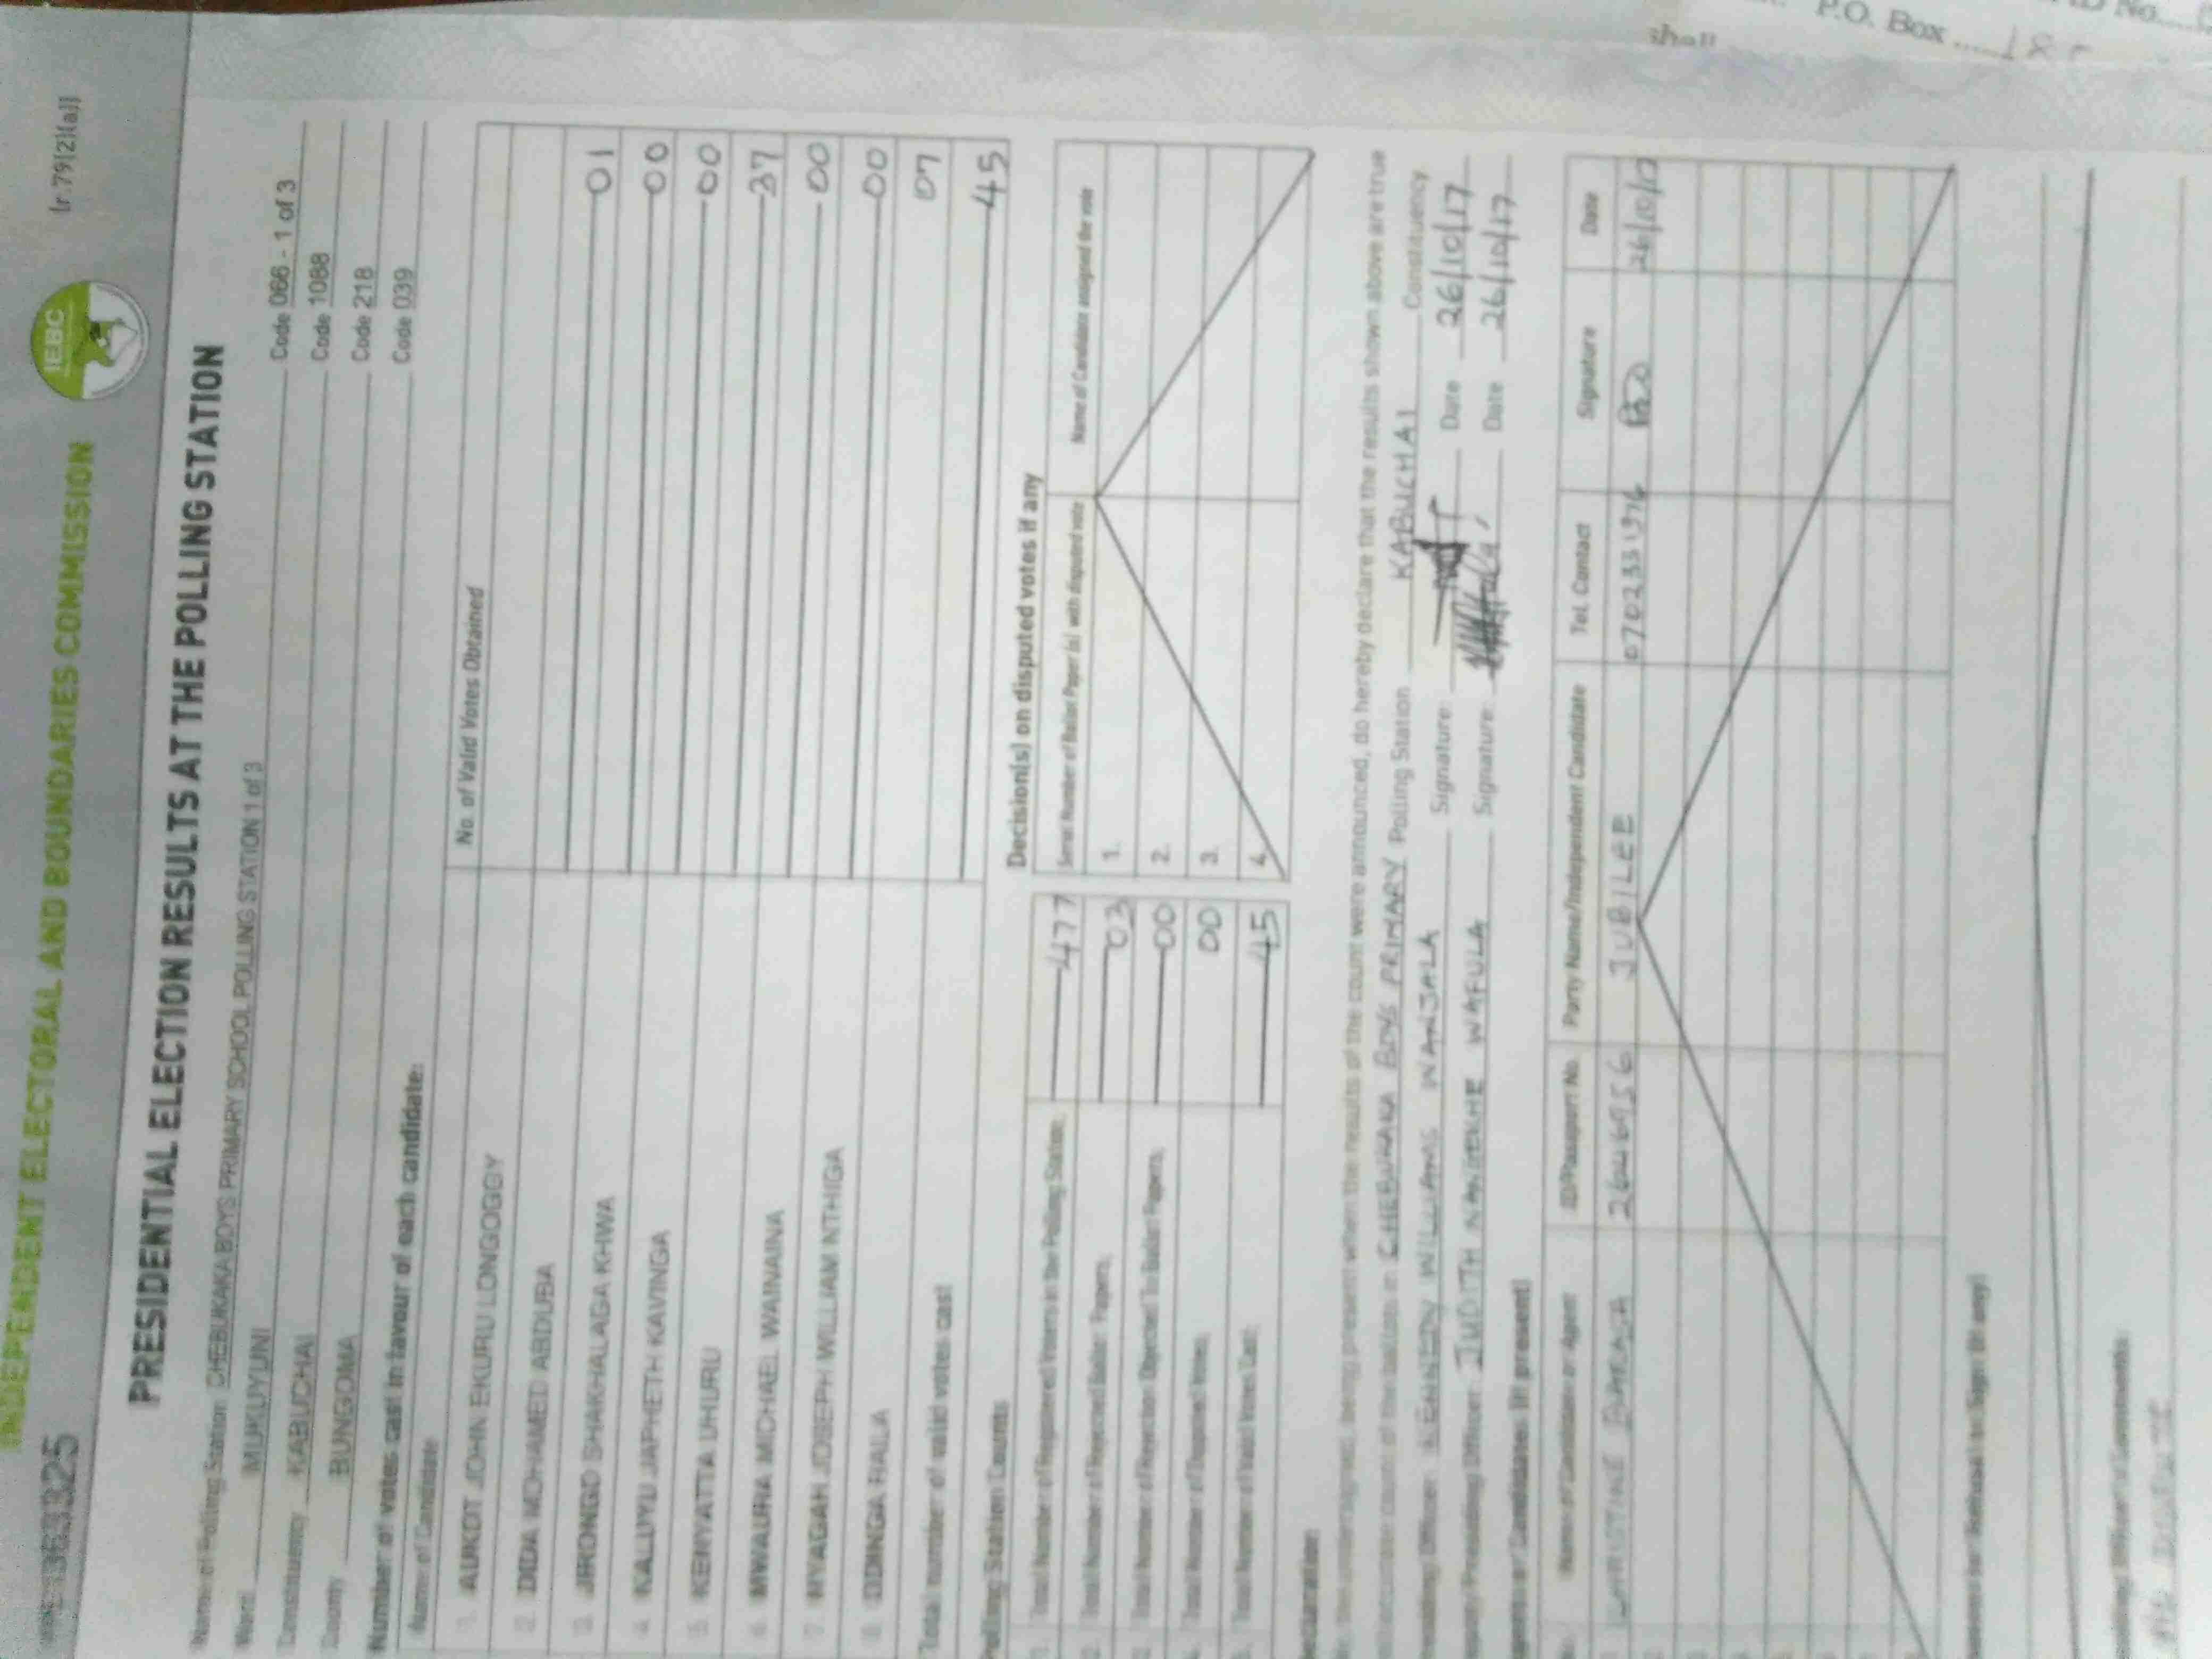 INDEPENDENT ELECTORAL AND BOUNDARIES COMMISSION
IEBC
[r.79(2)(a)]
PRESIDENTIAL ELECTION RESULTS AT THE POLLING STATION
Name of Polling Station CHEBUKAKA BOYS PRIMARY SCHOOL POLLING STATION 1 of 3 Code 066 - 1 of 3
Ward MUKUYUNI Code 1088
Constituency KABUCHAI Code 218
County BUNGOMA Code 039
Number of votes cast in favour of each candidate:
Name of Candidate No. of Valid Votes Obtained
1. AUKOT JOHN EKURU LONGOGGY
2. DIDA MOHAMED ABDUBA 01
3. JIRONGO SHAKHALAGA KHWA 00
4. KALUYU JAPHETH KAVINGA 00
5. KENYATTA UHURU 37
6. MWAURA MICHAEL WAINAINA 00
7. NYAGAH JOSEPH WILLIAM NTHIGA 00
8. ODINGA RAILA 07
Total number of valid votes cast 45
Polling Station Counts
Decision(s) on disputed votes if any
1. Total Number of Registered Voters in the Polling Station: 477
2. Total Number of Rejected Ballot Papers: 03
3. Total Number of Rejection Objected To Ballot Papers: 00
4. Total Number of Disputed Votes: 00
5. Total Number of Valid Votes Cast: 45
Serial Number of Ballot Paper (s) with disputed vote Name of Candidate assigned the vote
1.
2.
3.
4.
Declaration:
We, the undersigned, being present when the results of the count were announced, do hereby declare that the results shown above are true
and accurate count of the ballots in CHEBUKAKA BOYS PRIMARY Polling Station KABUCHAI Constituency
Presiding Officer: KENNEDY WILLIAMS WANJALA Signature: Date 26/10/17
Deputy Presiding Officer: JUDITH NANJEKHE WAFULA Signature: Date 26/10/17
Agents or Candidates (if present)
Name of Candidate or Agent ID/Passport No. Party Name/Independent Candidate Tel. Contact Signature Date
26/10/17
JUBILEE
Presiding Officer's Comments:
P.O. Box
shall